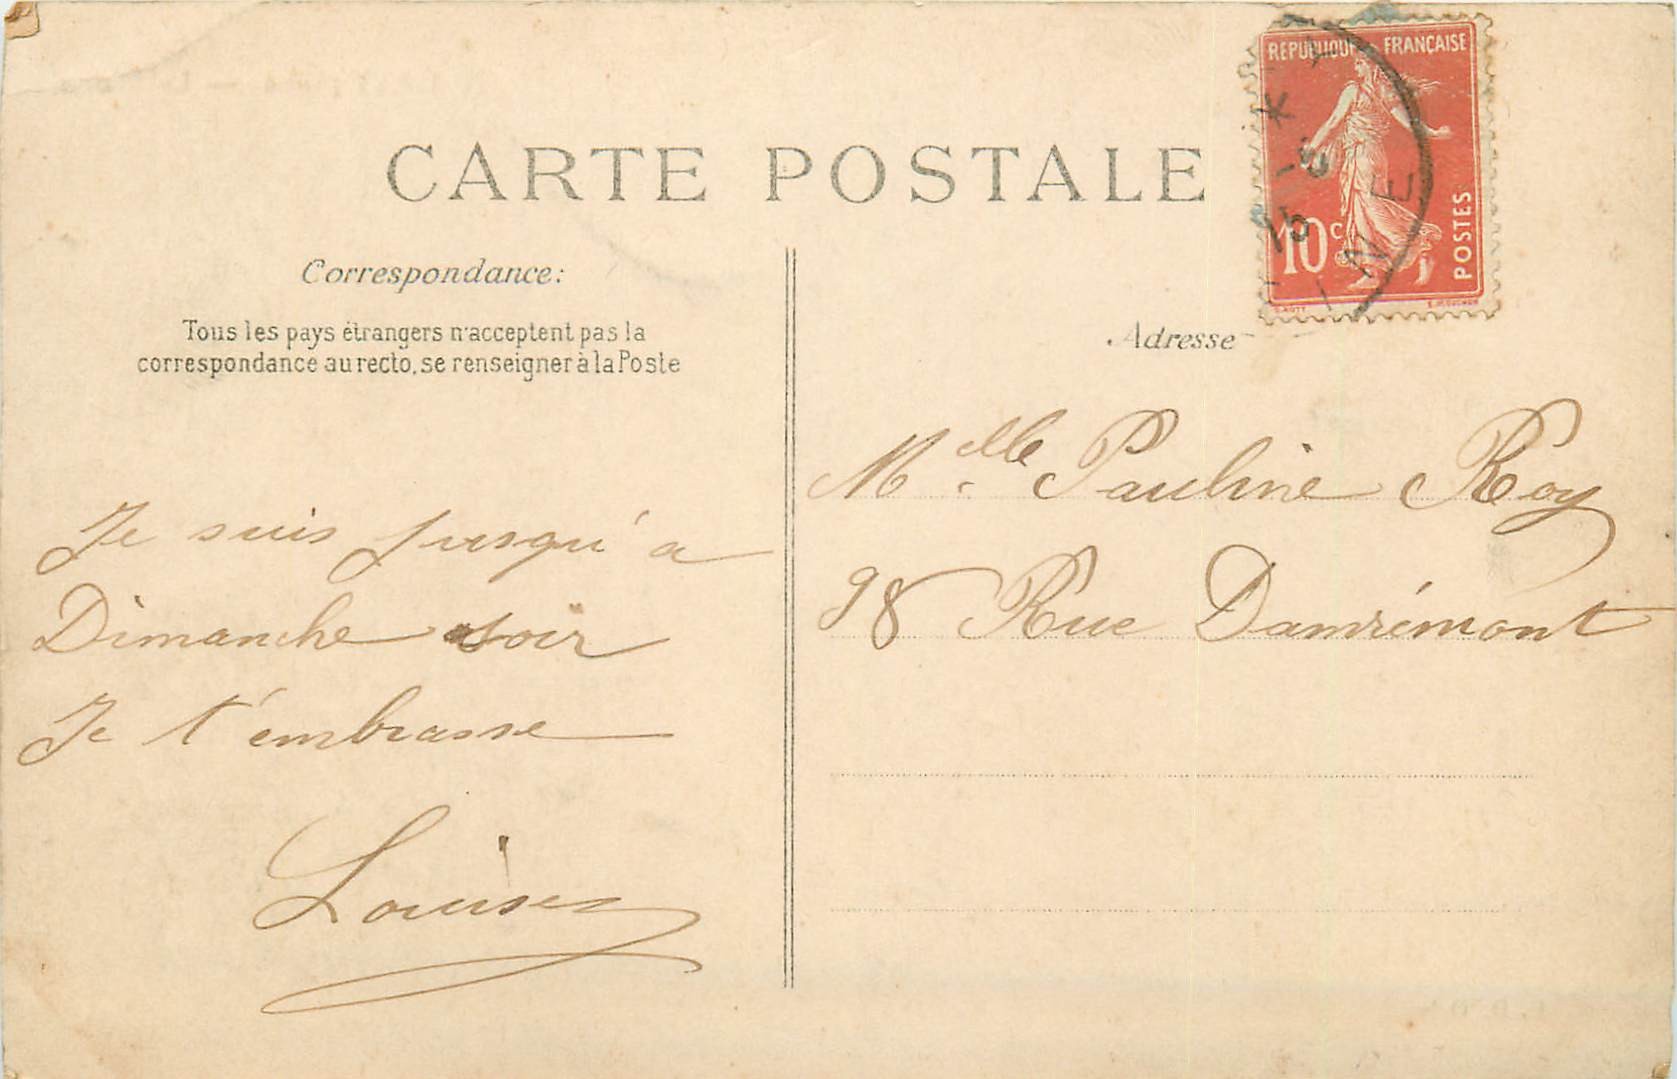 RÉPUBLIQUE FRANÇAISE
10c
POSTES
CARTE POSTALE
Correspondance:
Tous les pays étrangers n'acceptent pas la
correspondance au recto, se renseigner à la Poste
Adresse
Je suis jusqu'à
Dimanche soir
Je t'embrasse
Louise
Melle Pauline Roy
98 Rue Damrémont